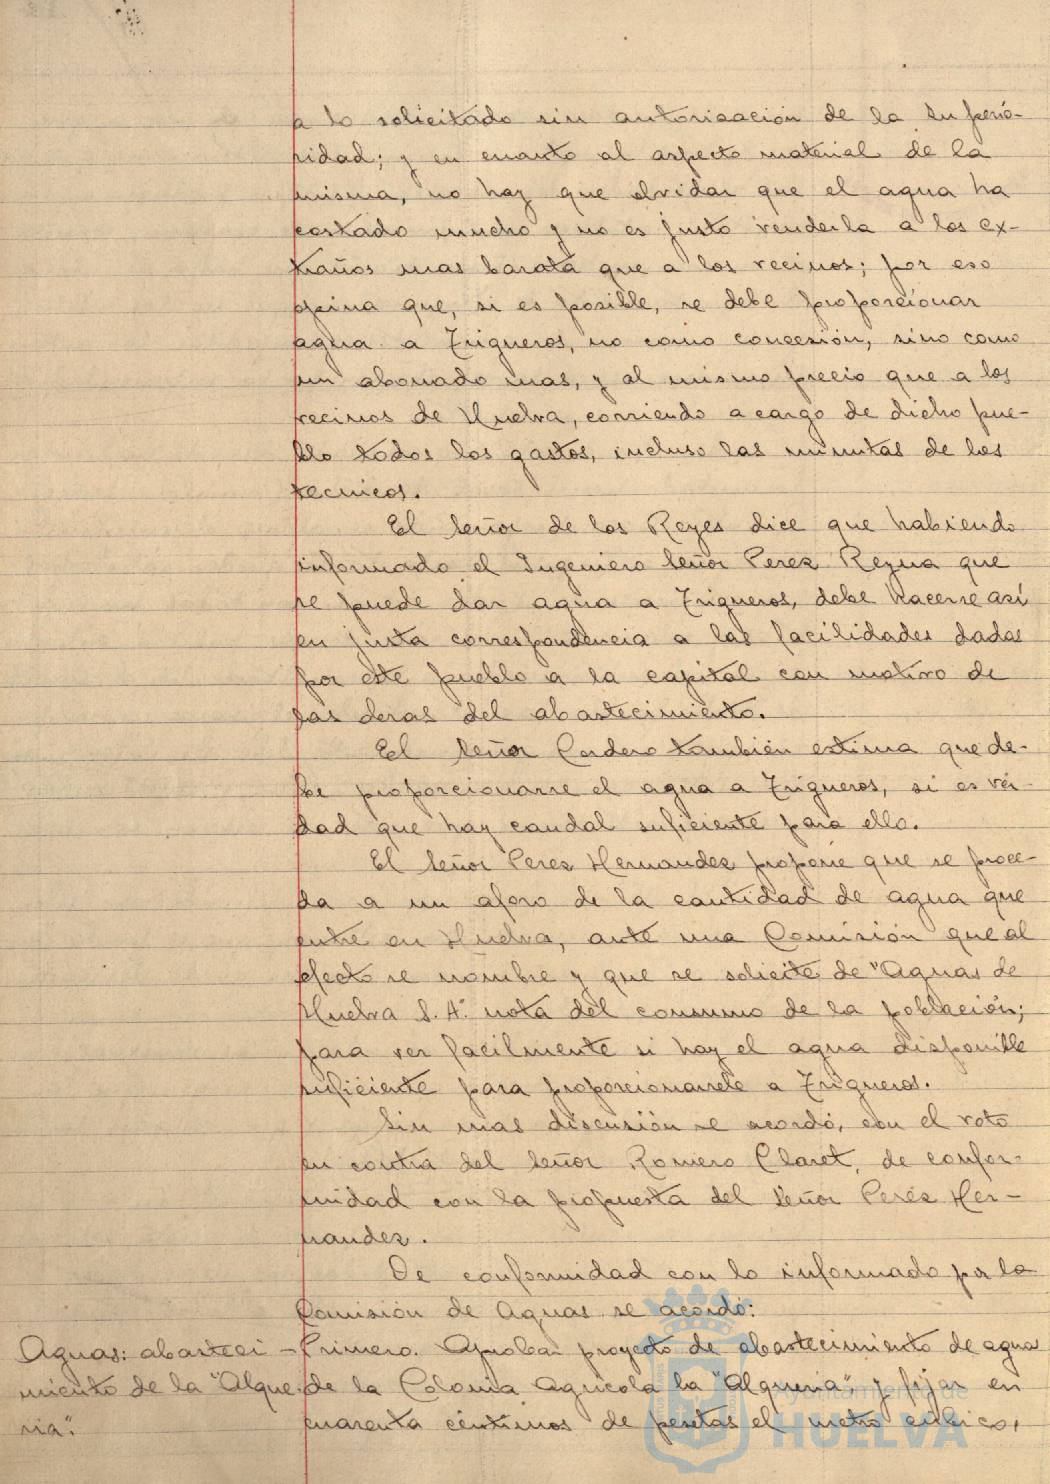 a lo solicitado sin autorización de la Superio-
ridad; y en cuanto al aspecto material de la
misma, no hay que olvidar que el agua ha
costado mucho y no es justo venderla a los ex-
traños mas barata que a los vecinos; por eso
opina que, si es posible, se debe proporcionar
agua a Trigueros, no como concesión, sino como
un abonado mas, y al mismo precio que a los
vecinos de Huelva, corriendo a cargo de dicho pue-
blo todos los gastos, incluso las minutas de los
tecnicos.
El Señor de los Reyes dice que habiendo
informado el Ingeniero Señor Perez Reyna que
se puede dar agua a Trigueros, debe hacerse así
en justa correspondencia a las facilidades dadas
por este pueblo a la capital con motivo de
las obras del abastecimiento.
El Señor Cordero también estima que de-
be proporcionarse el agua a Trigueros, si es ver-
dad que hay caudal suficiente para ello.
El Señor Perez Hernandez propone que se proce-
da a un aforo de la cantidad de agua que
entre en Huelva, ante una Comisión que al
efecto se nombre y que se solicite de "Aguas de
Huelva S. A." nota del consumo de la población;
para ver facilmente si hay el agua disponible
suficiente para proporcionarsele a Trigueros.
Sin mas discusión se acordó, con el voto
en contra del Señor Romero Claret, de confor-
midad con la propuesta del Señor Perez Her-
nandez.
De conformidad con lo informado por la
Comisión de Aguas se acordó:
Aguas: abasteci-
miento de la "Alque-
ria".
Primero. Aprobar proyecto de abastecimiento de aguas
de la Colonia Agricola la "Alqueria", y fijar en
cuarenta céntimos de pesetas el metro cúbico,
Ayuntamiento de
HUELVA